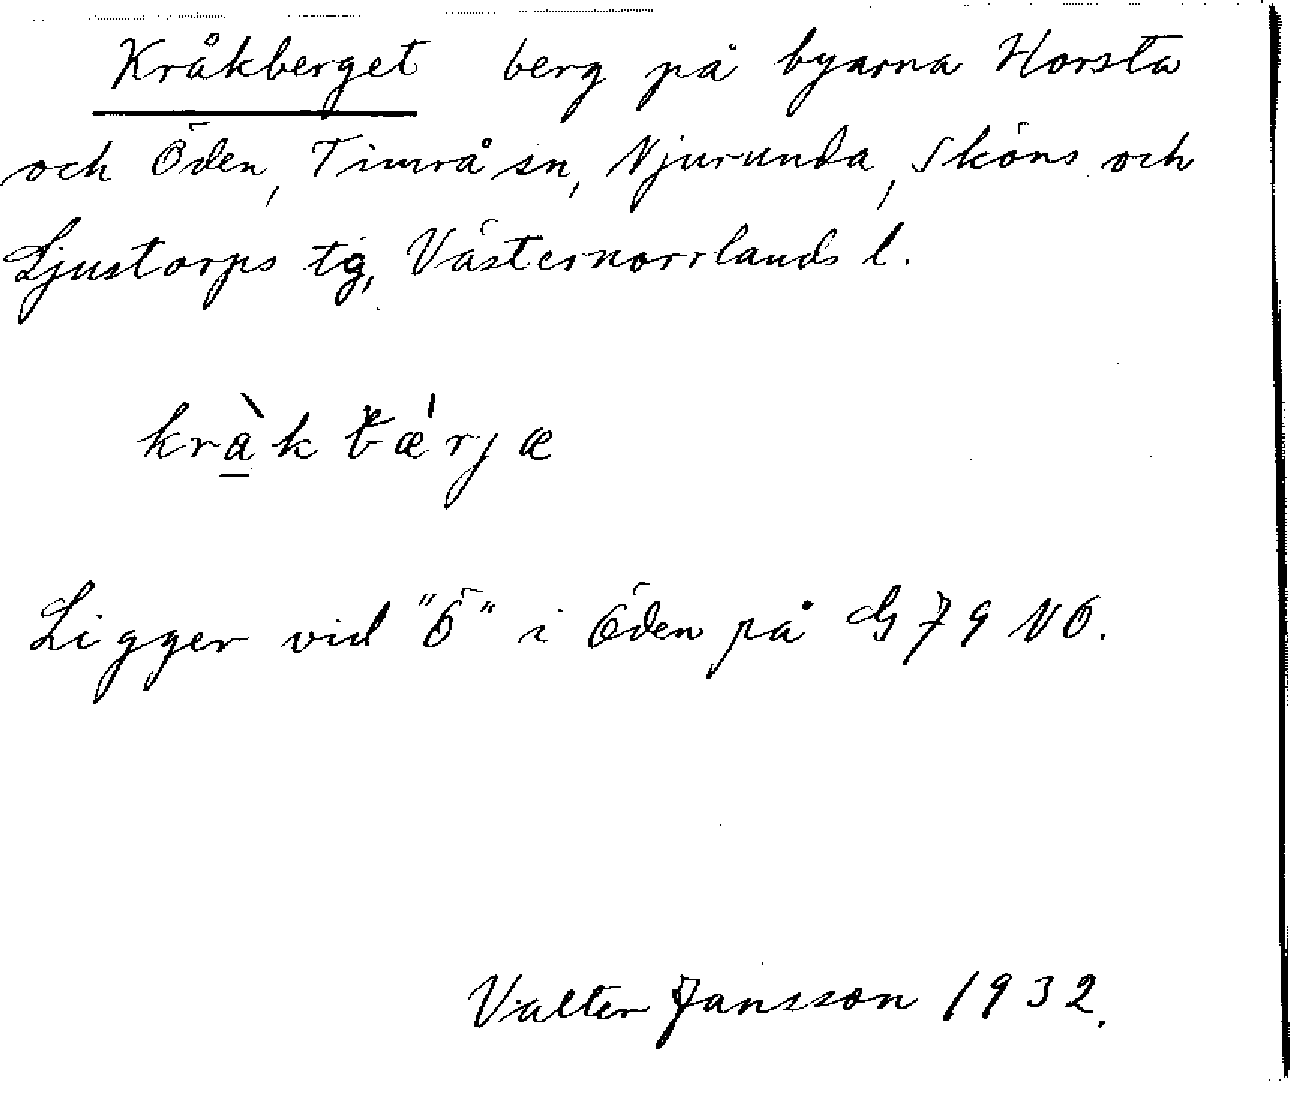 Kråkberget berg på byarna Horsta
och Öden, Timrå sn, Njurunda, Sköns och
Ljustorps tg, Västernorrlands l.
kràk bǽrjæ
Ligger vid "Ö" i Öden på G79 NO.
Valter Jansson 1932.